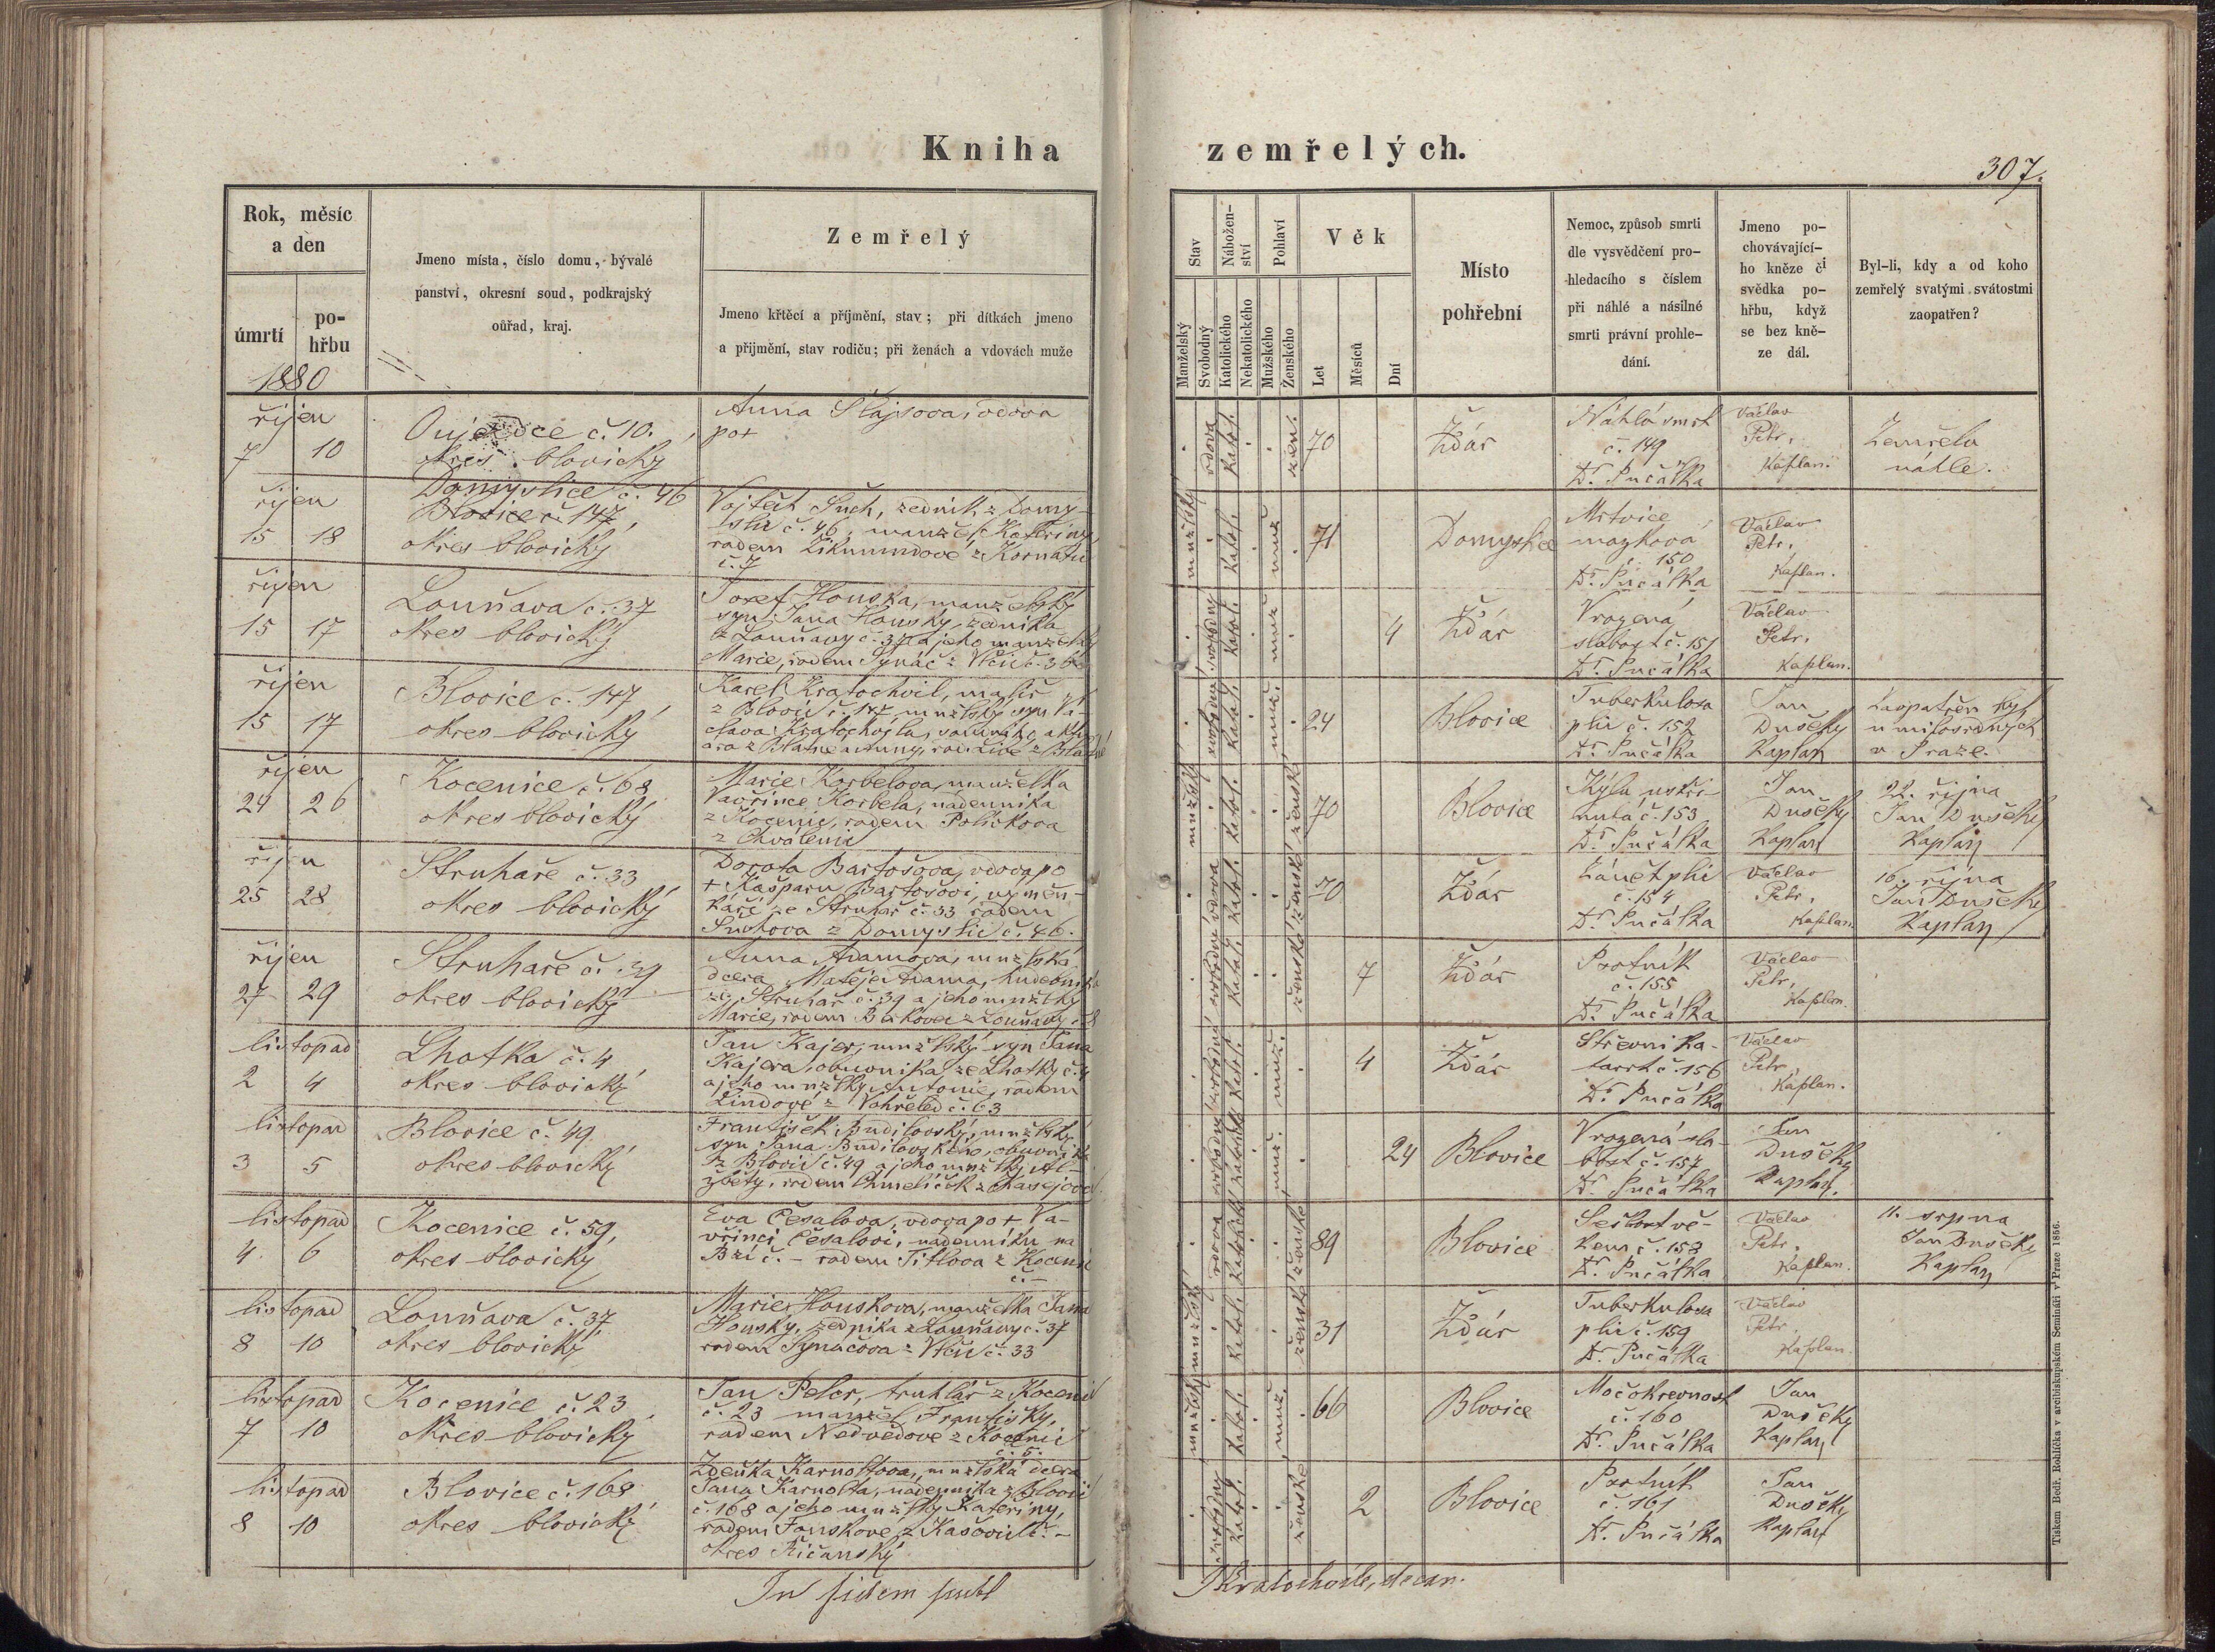 Kniha
zemřelých.
307.
Rok, měsíc
a den
úmrtí
po-
hřbu
1880
Jmeno místa, číslo domu, bývalé
panství, okresní soud, podkrajský
oúřad, kraj.
Zemřelý
Jmeno křtěcí a příjmění, stav; při dítkách jmeno
a přijmění, stav rodiču; při ženách a vdovách muže
Stav
Nábožen-
ství
Pohlaví
Manželský
Svobodný
Katolického
Nekatolického
Mužského
Ženského
Věk
Let
Měsíců
Dní
Místo
pohřební
Nemoc, způsob smrti
dle vysvědčení pro-
hledacího s číslem
při náhlé a násilné
smrti právní prohle-
dání.
Jmeno po-
chovávající-
ho kněze či
svědka po-
hřbu, když
se bez kně-
ze dál.
Byl-li, kdy a od koho
zemřelý svatými svátostmi
zaopatřen?
říjen
7 10
č. 10.
okres blovický
Anna Šlajsova, vdova
po+
vdova katol. žen. 70
Ždár
Náhlá smrt
č. 149
Dr. Pučálka
Václav
Petr,
Kaplan.
Zemřela
náhle.
říjen
15 18
Domyslice č. 46
Blovice č. 147,
okres blovický
Vojtěch Such, zedník z Domy-
slic č. 46, manžel Kateřiny
rodem Zikmundové z Kornatic
č. 7
mnžlský katol. muž 71
Domyslice
Mrtvice
mozková
č. 150
Dr. Pučálka
Václav
Petr,
Kaplan.
říjen
15 17
Louňava č. 37
okres blovický
Josef Houska, manželský
syn Jana Housky, zedníka
z Louňavy č. 37 a jeho manželky
Marie, rodem Synáč z Vlčic č. 36
svobodný katol. muž 4
Ždár
Vrozená
slabost č. 151
Dr. Pučálka
Václav
Petr,
Kaplan.
říjen
15 17
Blovice č. 147,
okres blovický
Karel Kratochvil, malíř
z Blovic č. 147, mnžlský syn Vá-
clava Kratochvíla,
z Blatné
svobodný katol. muž. 24
Blovice
Tuberkulosa
plic č. 152
Dr. Pučálka
Jan
Dušek,
Kaplan
Zaopatřen byl
u milosrdných
v Praze.
říjen
24 26
Kocenice č. 68
okres blovický
Marie Korbelova, manželka
Vavřince Korbela, nádenníka
z Kocenic, rodem Polívkova
z Chválenic
mnžlský katol. ženské 70
Blovice
Kýla uskři-
nutá č. 153
Dr. Pučálka
Jan
Dušek,
Kaplan
22. října
Jan Dušek,
Kaplan
říjen
25 28
Struhaře č. 33
okres blovický
Dorota Bartošova, vdova po
+ Kašparu Bartošovi, výměn-
káři ze Struhař č. 33 rodem
Suchova z Domyslic č. 46.
vdova katol. ženské 70
Ždár
Zánět plic
č. 154
Dr. Pučálka
Václav
Petr,
Kaplan.
16. října
Jan Dušek,
Kaplan
říjen
27 29
Struhaře č. 39
okres blovický
Anna Adamova, mnžlská
dcera Matěje Adama, hudebníka
ze Struhař č. 39 a jeho mnžlky
Marie, rodem z Louňavy č. 8
svobodné katol. ženské 7
Ždár
Psotník
č. 155
Dr. Pučálka
Václav
Petr,
Kaplan.
listopad
2 4
Lhotka č. 4
okres blovický
Jan Kajer, mnžlský syn Jana
Kajera, obuvníka ze Lhotky č. 4
a jeho mnžlky Antonie, rodem
Lindové z Vohřeled č. 63
svobodný katol. muž. 4
Ždár
Střevní ka-
tarrh č. 156
Dr. Pučálka
Václav
Petr,
Kaplan.
listopad
3 5
Blovice č. 49.
okres blovický
František Budilovský, mnžlský
syn Jana Budilovského, obuvníka
z Blovic č. 49 a jeho mnžlky Al-
žběty, rodem Chmelíček z Kasejovic
svobodný katolick muž. 24
Blovice
Vrozená sla-
bost č. 157
Dr. Pučálka
Jan
Dušek,
Kaplan.
listopad
4 6
Kocenice č. 59,
okres blovický
Eva Česalova, vdova po + Va-
vřinci Česalovi, nádenníku na
Bzí č. - rodem Titlova z Kocenic
č. -
vdova katolick ženské 89
Blovice
Sešlost vě-
kem č. 158
Dr. Pučálka
Václav
Petr,
Kaplan.
11. srpna
Jan Dušek,
Kaplan
listopad
8 10
Louňava č. 37
okres blovický
Marie Houskova, manželka Jana
Housky, zedníka z Louňavy č. 37
rodem Synačova z Vlčic č. 33
mnžlský katol. ženské 31
Ždár
Tuberkulosa
plic č. 159
Dr. Pučálka
Václav
Petr,
Kaplan.
listopad
7 10
Kocenice č. 23
okres blovický
Jan Pelcr, truhlář z Kocenic
č. 23 manžel Františky,
rodem Nedvědové z Kocenic
č. 5.
mnžlský katol. muž. 66
Blovice
Močokrevnost
č. 160
Dr. Pučálka
Jan
Dušek,
Kaplan
listopad
8 10
Blovice č. 168,
okres blovický
Zdeňka Karnoltova, mnžlská dcera
Jana Karnolta, nádenníka z Blovic
č. 168 a jeho mnžlky Kateřiny,
rodem z Kašovic č. -
okres Říčanský
svobodný katol. ženské 2
Blovice
Psotník
č. 161
Dr. Pučálka
Jan
Dušek,
Kaplan
In fidem publ
J Kratochvíle, decan.
Tiskem Bedř. Rohlíčka v arcibiskupském Semináři v Praze 1866.